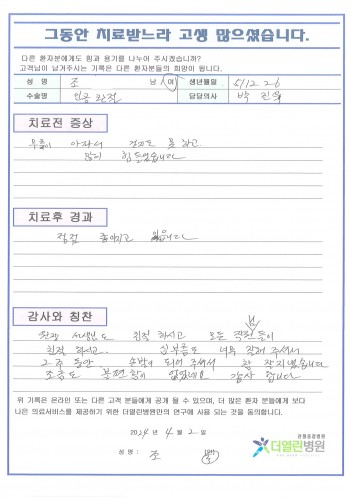 그동안 치료받느라 고생 많으셨습니다.
다른 환자분에게도 힘과 용기를 나누어 주시겠습니까?
고객님이 남겨주시는 기록은 다른 환자분들의 희망이 됩니다.
성 명 조 남 / 여 생년월일 51.12.26
수술명 인공관절 담당의사 박
치료전 증상
무릎이 아파서 걷지도 못 하고
많이 힘들었습니다
치료후 경과
점점 좋아지고 있습니다
감사와 칭찬
원장 선생님도 친절하시고 모든 직원들이
친절하시고 간호를 너무 잘해 주셔서
2주 동안 손발이 되어 주셔서 잘 지냈습니다
조금도 불편함이 없었네요 감사합니다
위 기록은 온라인 또는 다른 고객 분들에게 공개 될 수 있으며, 더 많은 환자 분들에게 보다
나은 의료서비스를 제공하기 위한 더열린병원만의 연구에 사용 되는 것을 동의합니다.
2024년 4월 2일
성 명 : 조
관절중점병원
더열린병원